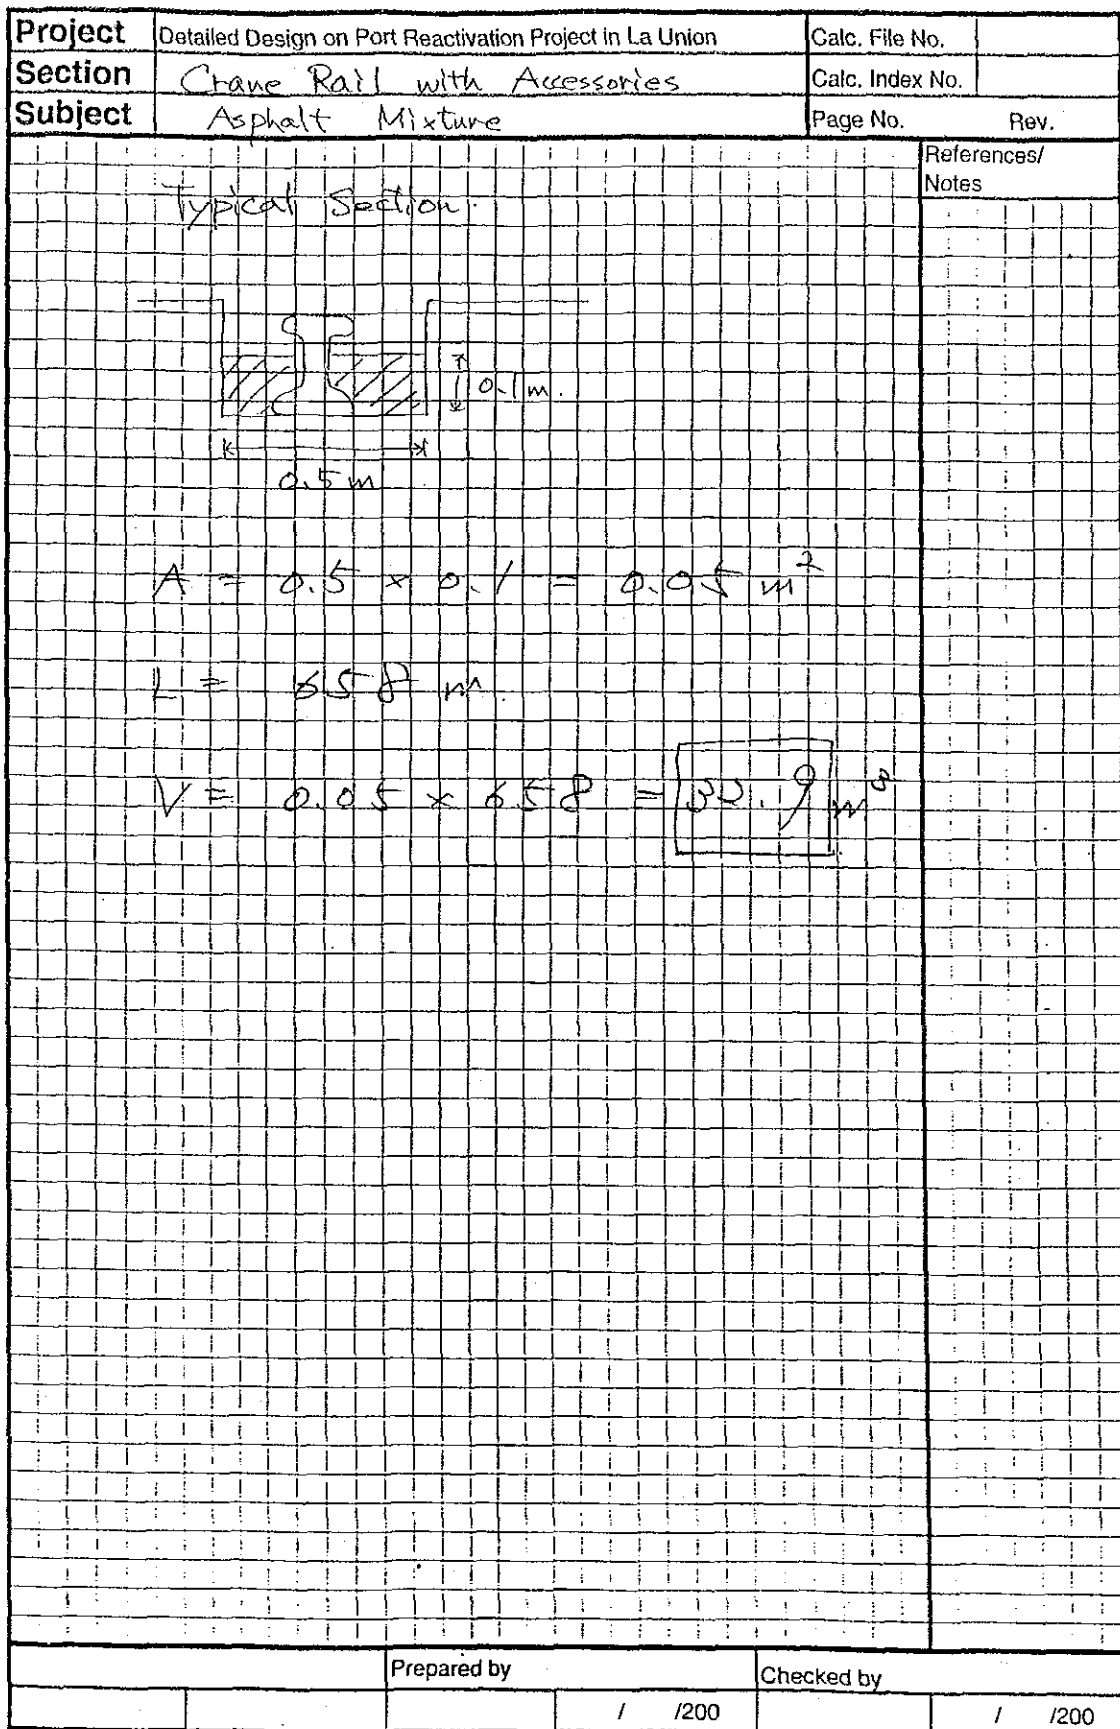 Project Detailed Design on Port Reactivation Project in La Union Calc. File No.
Section Crane Rail with Accessories Calc. Index No.
Subject Asphalt Mixture Page No. Rev.
References/
Notes
Typical Section.
0.1 m.
0.5 m
A = 0.5 × 0.1 = 0.05 m²
L = 658 m.
V = 0.05 × 658 = 32.9 m³
Prepared by Checked by
/ /200 / /200